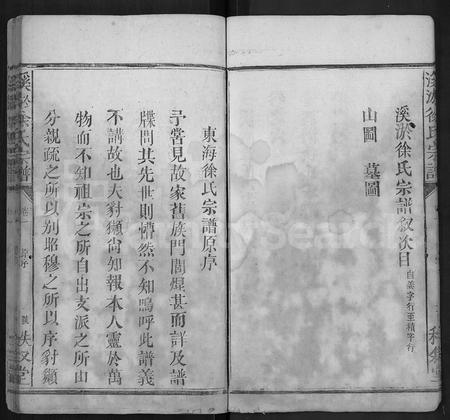 溪淤徐氏宗譜
溪淤徐氏宗譜敘次目自義字行至積字行
山圖 墓圖
東海徐氏宗譜原序
予嘗見故家舊族門閭焜甚而詳及譜
牒問其先世則懵然不知嗚呼此譜義
不講故也夫豺獺尚知報本人靈於萬
物而不知祖宗之所自出支派之所由
分親疏之所以別昭穆之所以序豺獺
溪淤徐氏宗譜 卷 原序 敘堂